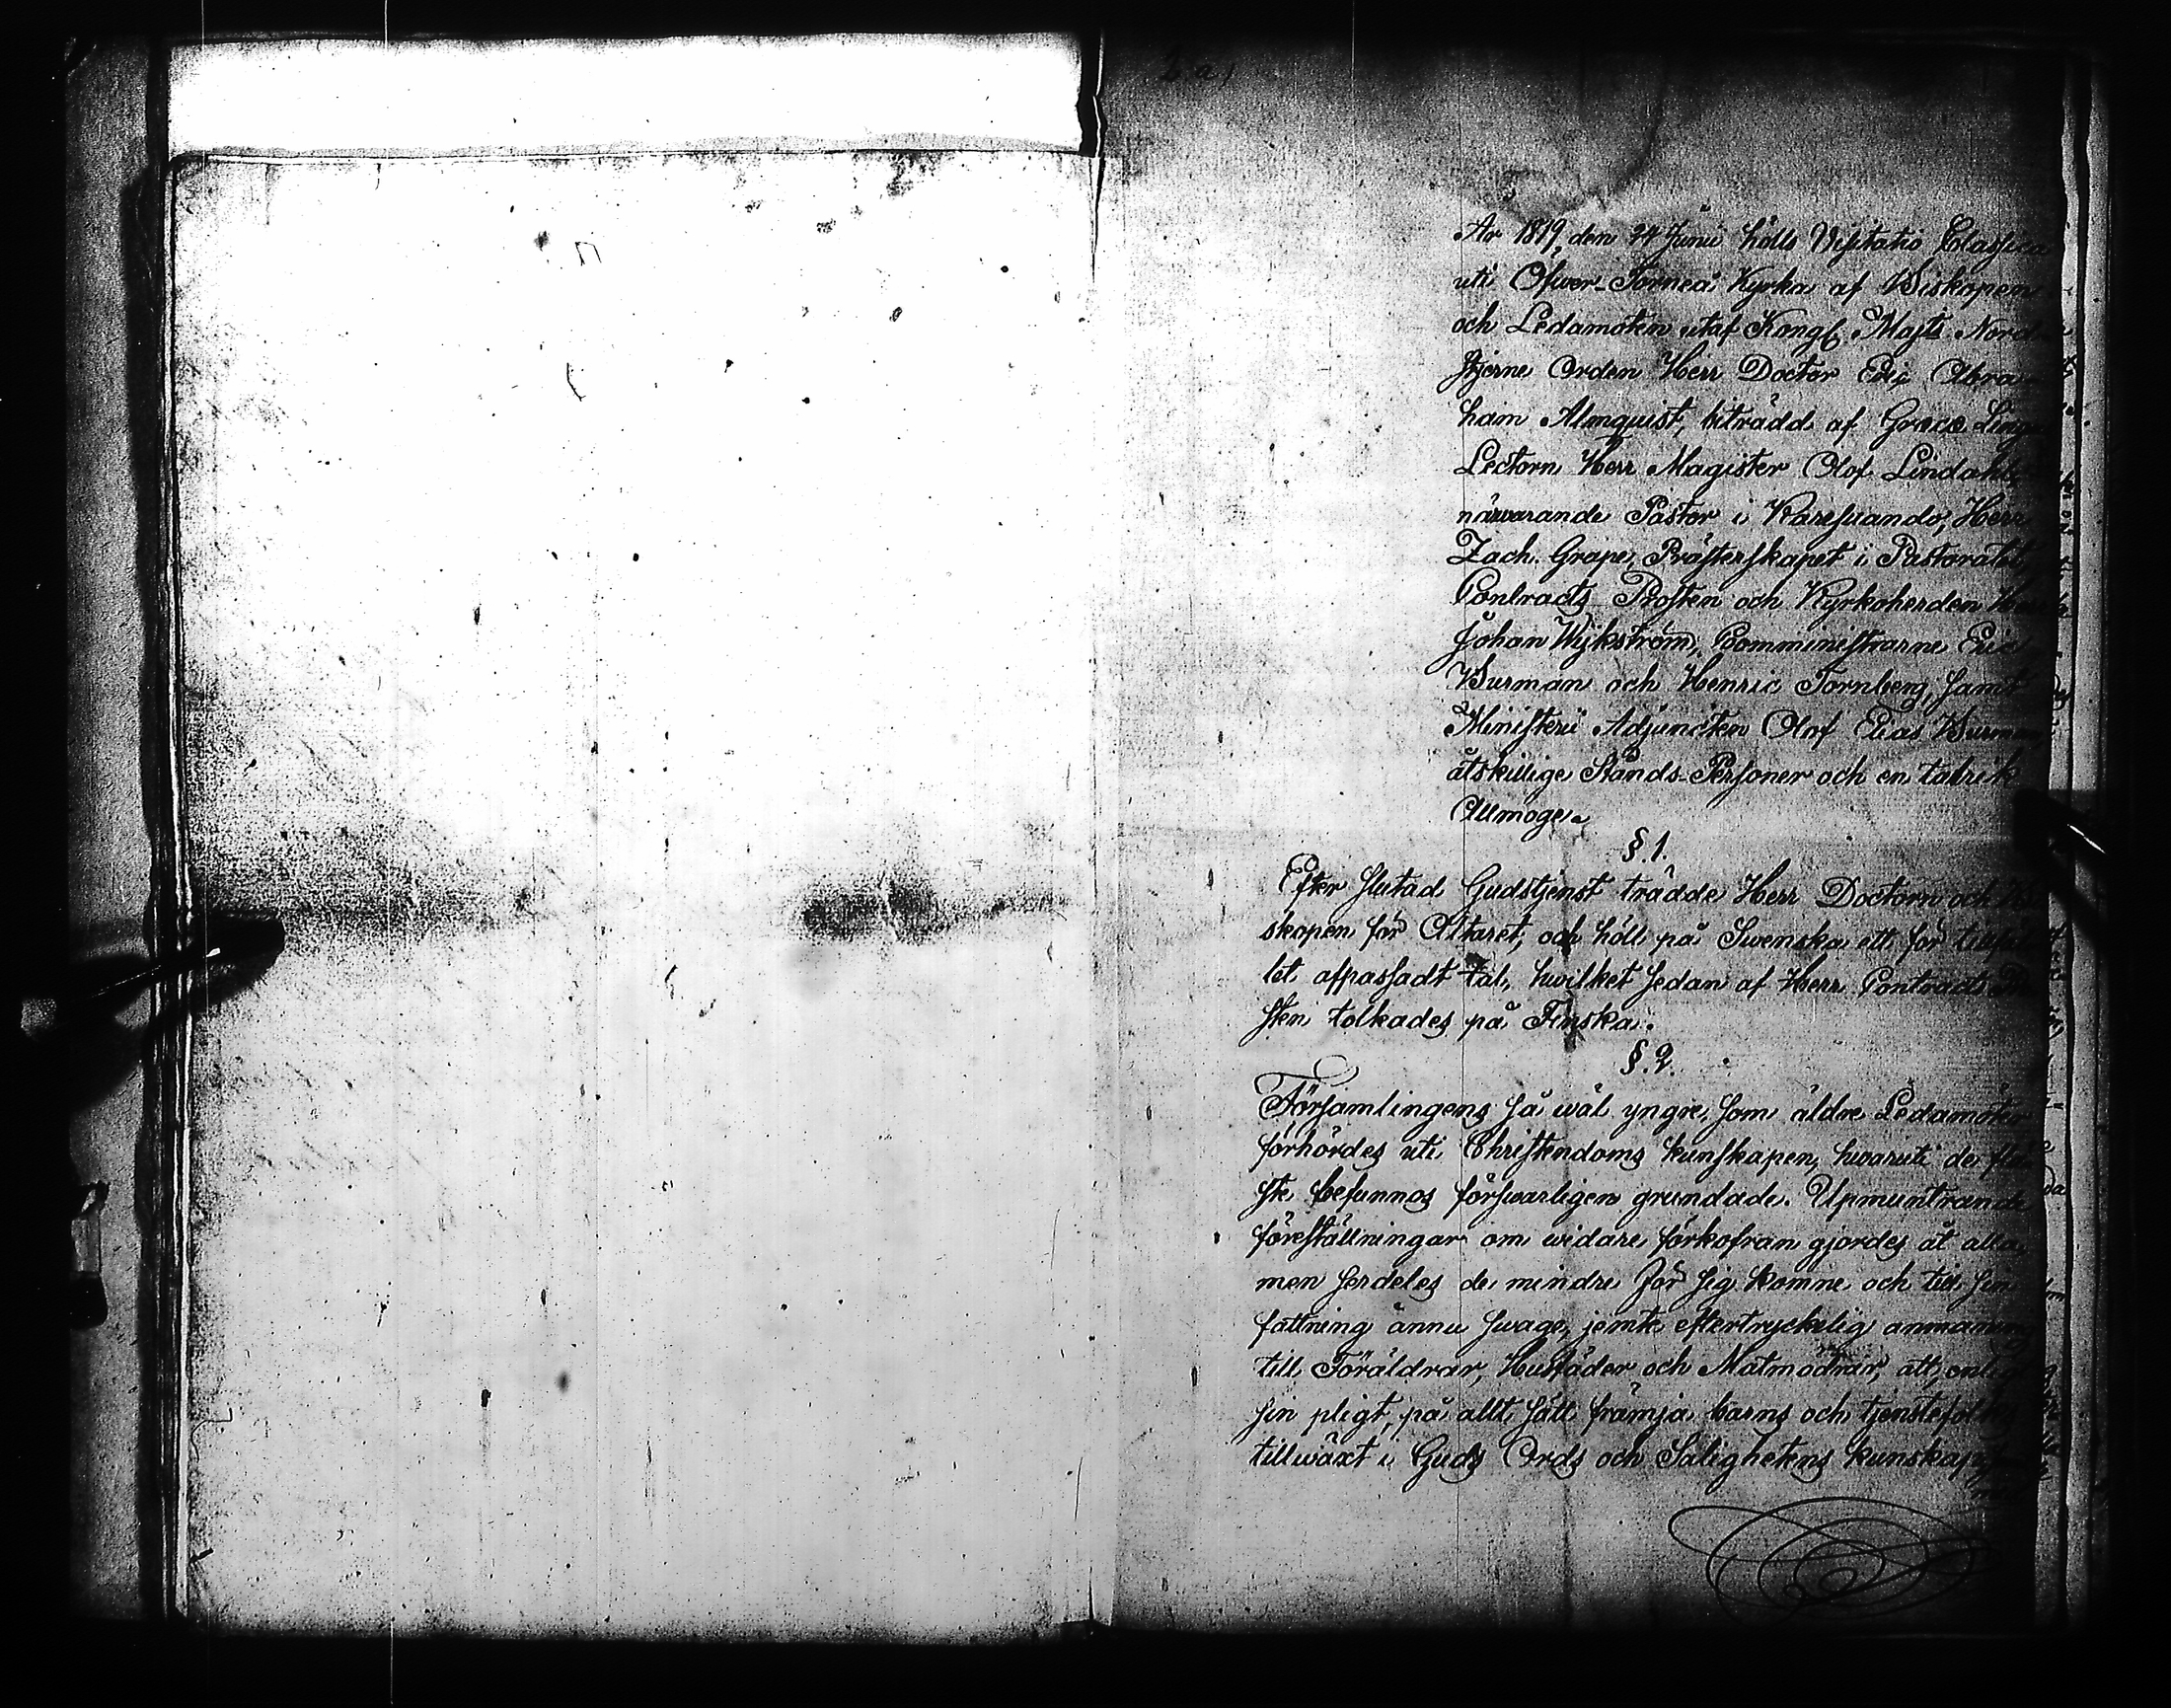 2 a)
År 1819, den 24 Junii hölls Visitatio Classica
uti Öfwer-Torneå Kyrka af Biskopen
och Ledamoten utaf Kongl. Majts Nord
stjerne Orden Herr Doctor Eric Abra-
ham Almquist, biträdd af Græcæ Lingu
Lectorn Herr Magister Olof Lindahl,
närwarande Pastor i Karesuando, Herr
Zach. Grape, Prästerskapet i Pastoratet,
Contracts Prosten och Kyrkoherden Herr
Johan Wijkström, Comministrarne Eric
Burman och Henric Tornberg, samt
Ministerii Adjuncten Olof Elias Burman,
åtskillige Stånds-Personer och en talrik
Allmoge.
§.1.
Efter slutad Gudstjenst trädde Herr Doctorn och
skopen för Altaret, och höll på Swenska ett för
let afpassadt tal, hwilket sedan af Herr Contracts
sten tolkades på Finska.
§.2.
Församlingens så wäl yngre, som äldre Ledamöter
förhördes uti Christendoms kunskapen, hwaruti de
ste befunnos förswarligen grundade. Upmuntrande
föreställningar om widare förkofran gjordes åt alla,
men serdeles de mindre för sig komne och till sin
fattning ännu swage, jemte eftertryckelig anmaning
till Föräldrar, Husfäder och Matmödrar, att, enligt
sin pligt, på allt sätt främja barns och tjenstefolks
tillwäxt i Guds Ords och Salighetens kunskap